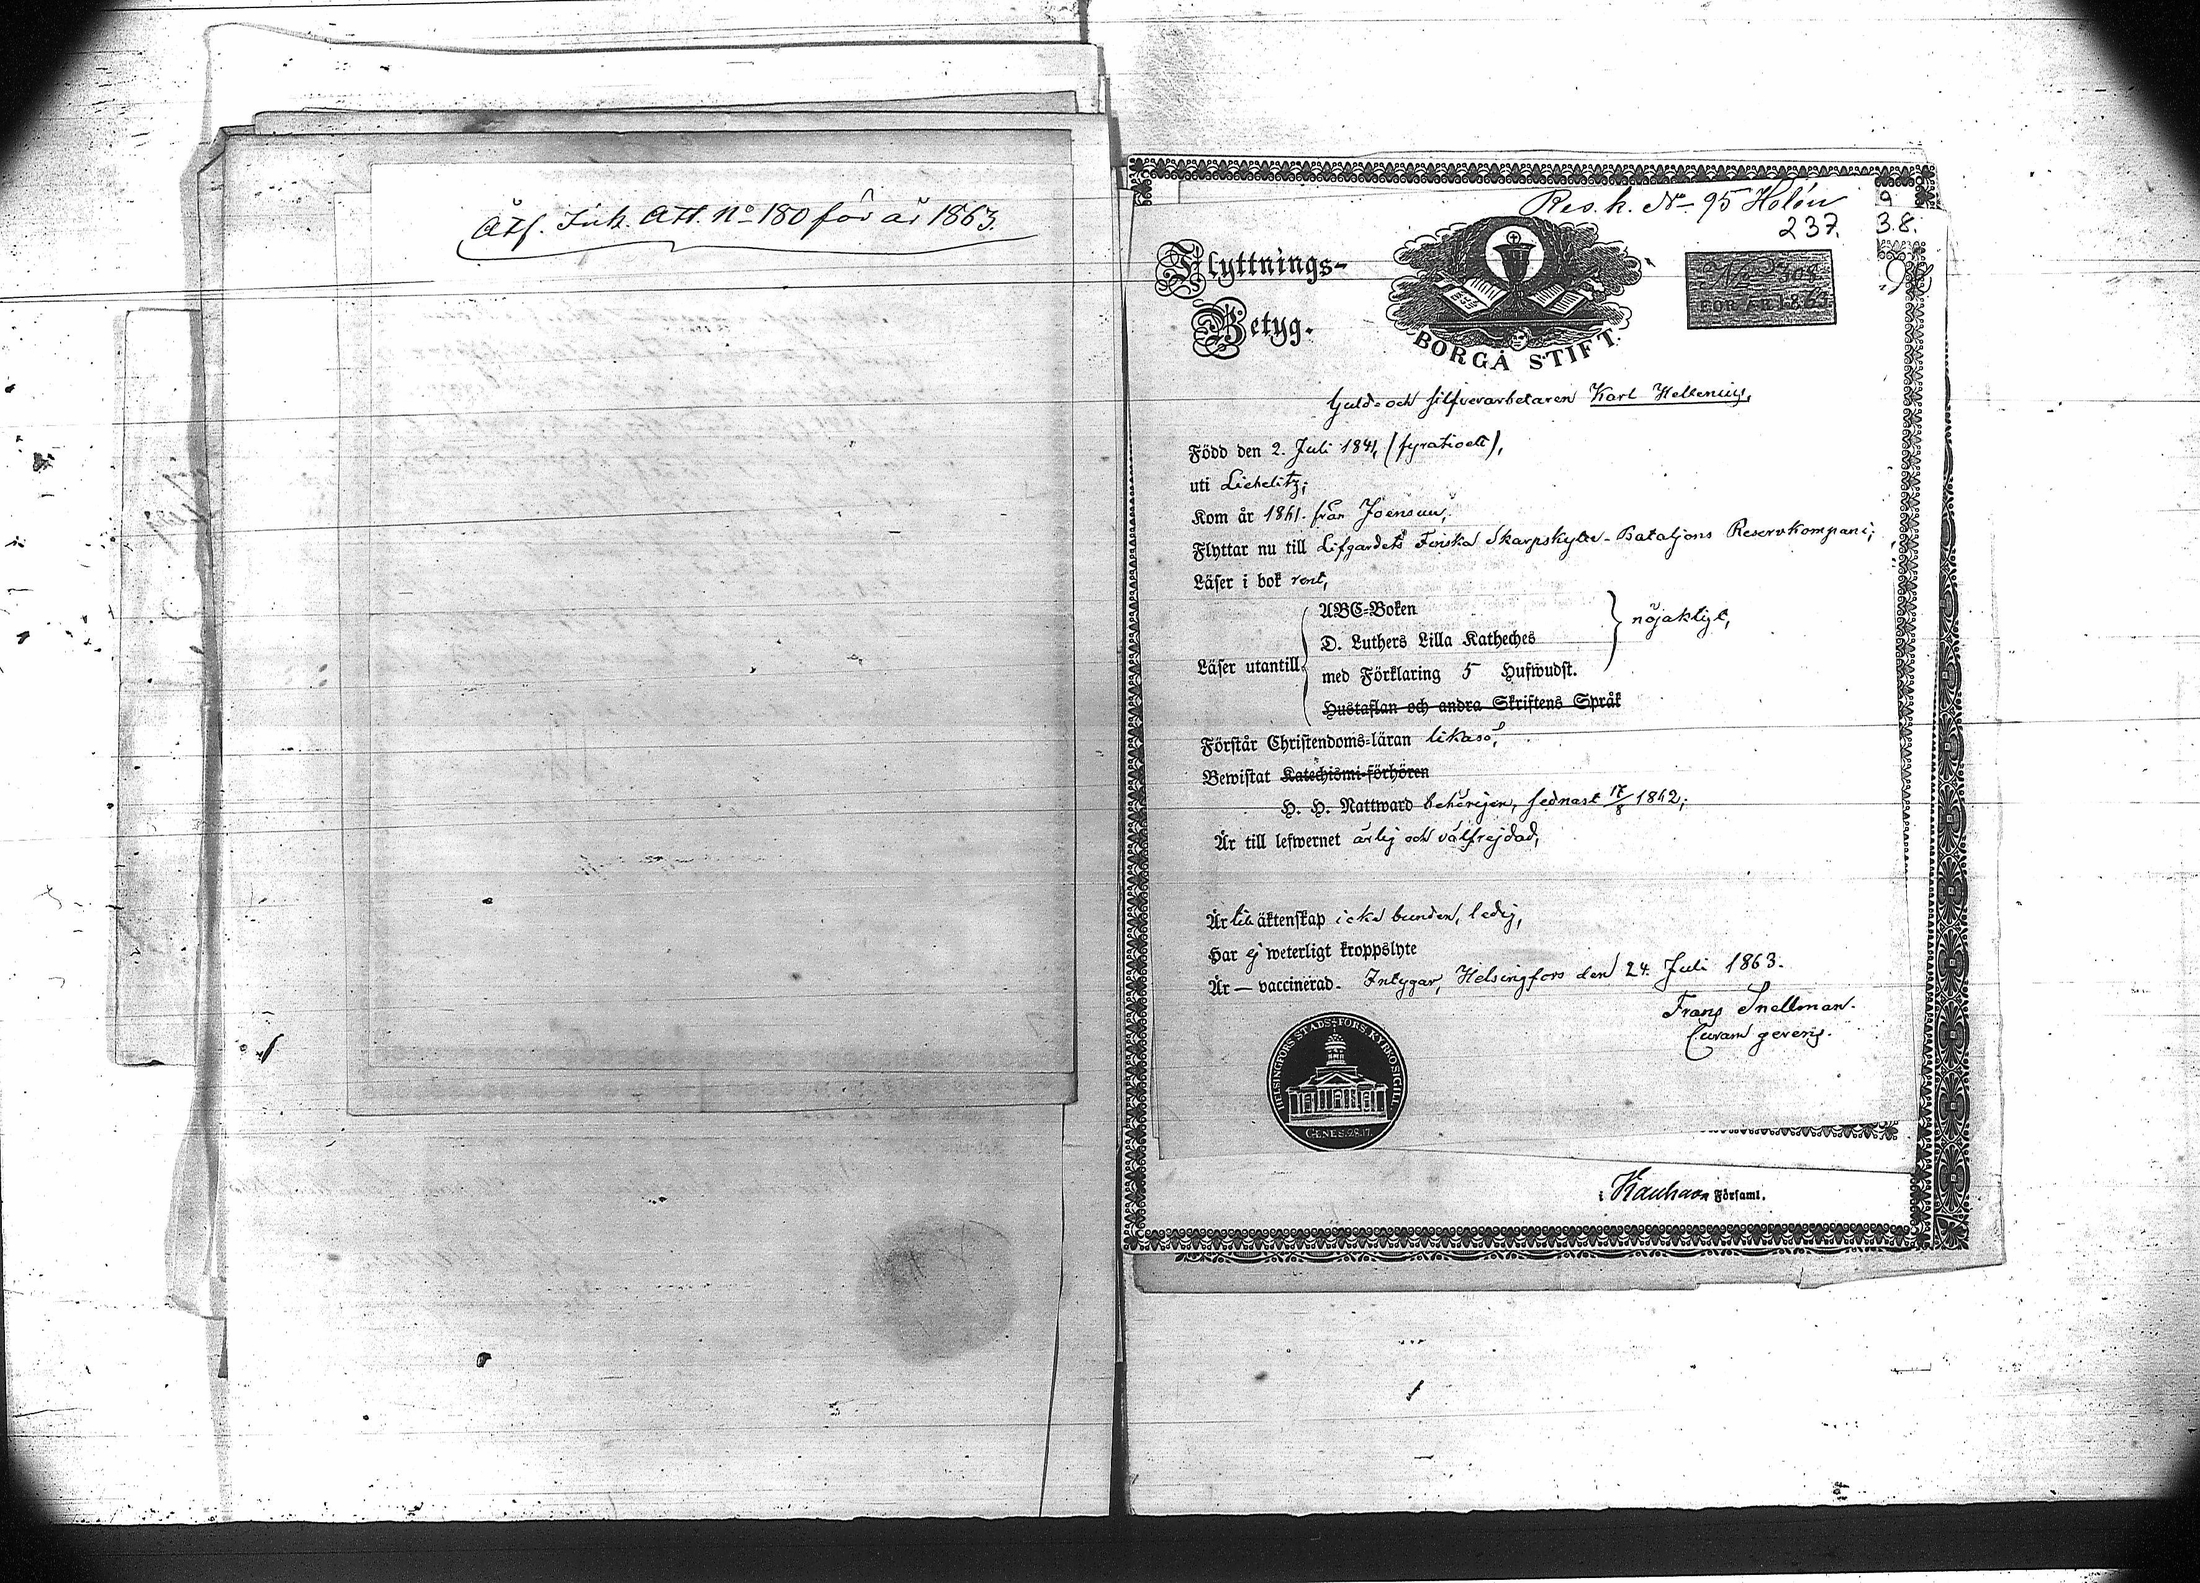 Åtf. Inh. Att. No 180 för år 1863.
Res.k. No 95 Holón 9
237. 38.
Flyttnings-
Betyg.
BORGÅ STIFT.
No 308
FÖR ÅR 1863.
Guld- och silfverarbetaren Karl Hellenius,
Född den 2. Juli 1841, (fyrationett),
uti Liebelitz;
Kom år 1861. från Joensuu;
Flyttar nu till Lifgardets Finska Skarpskytte-Bataljons Reservkompani;
Läser i bok rent,
Läser utantill
ABC-Boken
D. Luthers Lilla Katheches
med Förklaring 5 Hufwudst.
nöjaktigt,
Hustaflan och andra Skriftens Språk
Förstår Christendoms-läran likaså,
Bewistat Katechismi-förhören
H. H. Nattward behörigen, sednast 17/8 1862;
Är till lefwernet ärlig och välfrejdad,
Är till äktenskap icke bunden, ledig,
Har ej weterligt kroppslyte
Är — vaccinerad. Intygar, Helsingfors den 24. Juli 1863.
Frans Snellman.
Curam gerens.
HELSINGFORS STADS-FÖRS. KYRKOSIGILL
GENES. 28.17.
i Kauhava Församl.